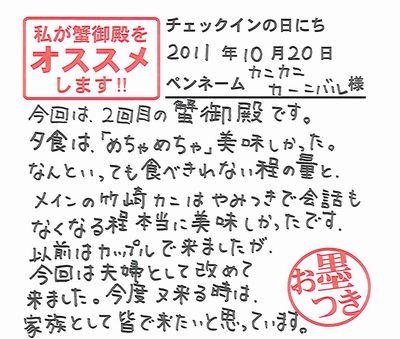 私が蟹御殿を
オススメ
します!!
チェックインの日にち
2011年10月20日
ペンネーム カニカニカーニバル様
今回は、2回目の蟹御殿です。
夕食は、「めちゃめちゃ」美味しかった。
なんといっても食べきれない程の量と、
メインの竹崎カニはやみつきで会話も
なくなる程本当に美味しかったです。
以前はカップルで来ましたが、
今回は夫婦として改めて
来ました。今度又来る時は、
家族として皆で来たいと思っています。
お墨つき